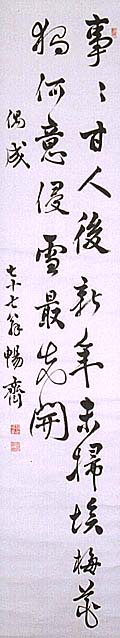 事〻甘人後新年未掃埃梅花
獨何意侵雪最先開
偶成
七十七翁暢齊